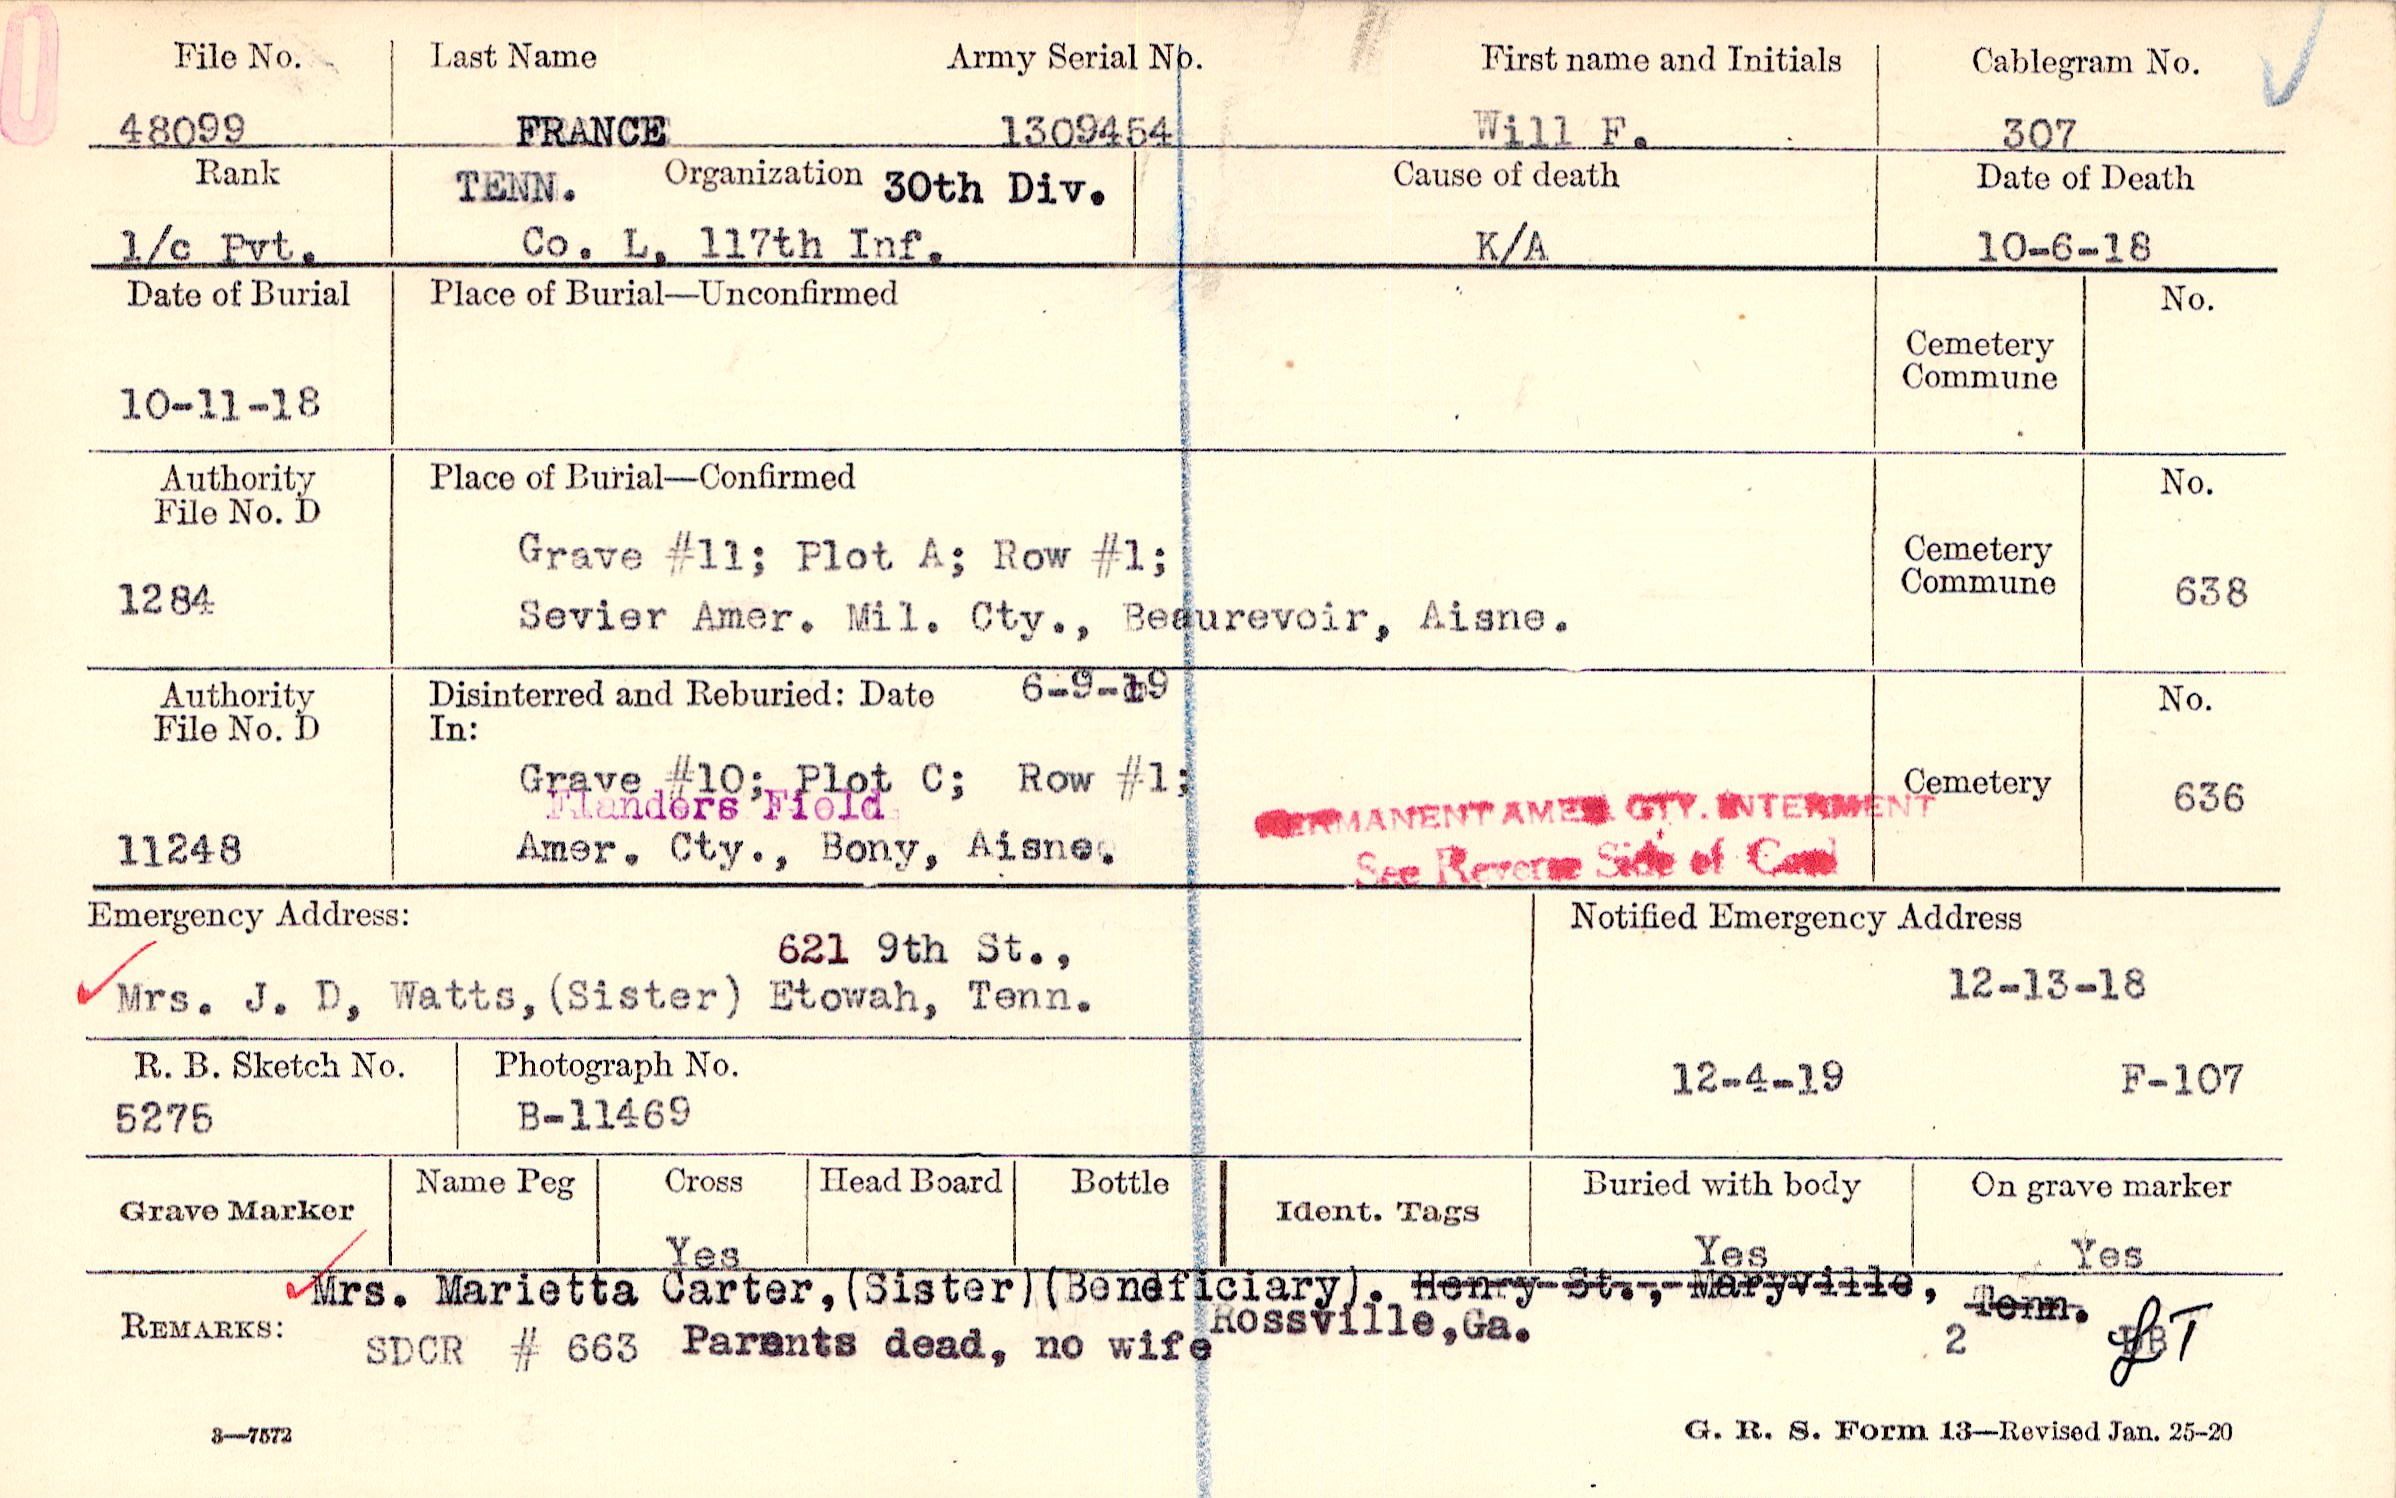 File No. Last Name Army Serial No. First name and Initials Cablegram No.
48099 FRANCE 1309454 Will F. 307
Rank TENN. Organization 30th Div. Cause of death Date of Death
1/c Pvt. Co. L, 117th Inf. K/A 10-6-18
Date of Burial Place of Burial—Unconfirmed No.
Cemetery
Commune
10-11-18
Authority Place of Burial—Confirmed No.
File No. D
Grave #11; Plot A; Row #1; Cemetery
Commune
1284 638
Sevier Amer. Mil. Cty., Beaurevoir, Aisne.
Authority Disinterred and Reburied: Date 6-9-19 No.
File No. D In:
Grave #10; Plot C; Row #1; Cemetery 636
Flanders Field PERMANENT AMER. CTY. INTERMENT
11248 Amer. Cty., Bony, Aisne. See Reverse Side of Card
Emergency Address: Notified Emergency Address
621 9th St.,
Mrs. J. D, Watts,(Sister) Etowah, Tenn. 12-13-18
R. B. Sketch No. Photograph No. 12-4-19 F-107
5275 B-11469
Grave Marker Name Peg Cross Head Board Bottle Ident. Tags Buried with body On grave marker
Yes Yes Yes
Mrs. Marietta Carter,(Sister)(Beneficiary). Henry St., Maryville, Tenn.
Rossville,Ga.
REMARKS: SDCR # 663 Parents dead, no wife 2
3—7572 G. R. S. Form 13—Revised Jan. 25-20